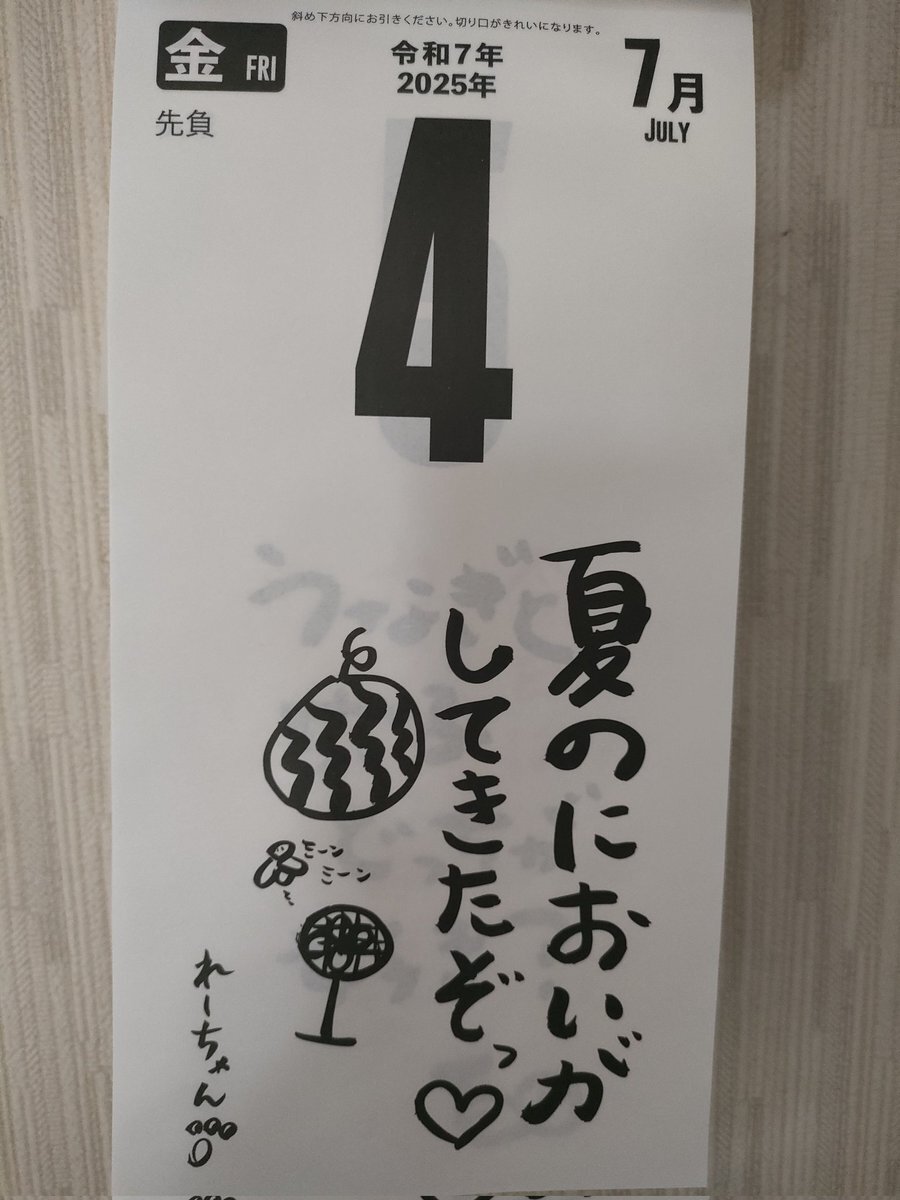 斜め下方向にお引きください。切り口がきれいになります。
金 FRI
令和7年
2025年
7月
JULY
先負
4
夏のにおいが
してきたぞっ♡
ミーン
ミーン
れーちゃん